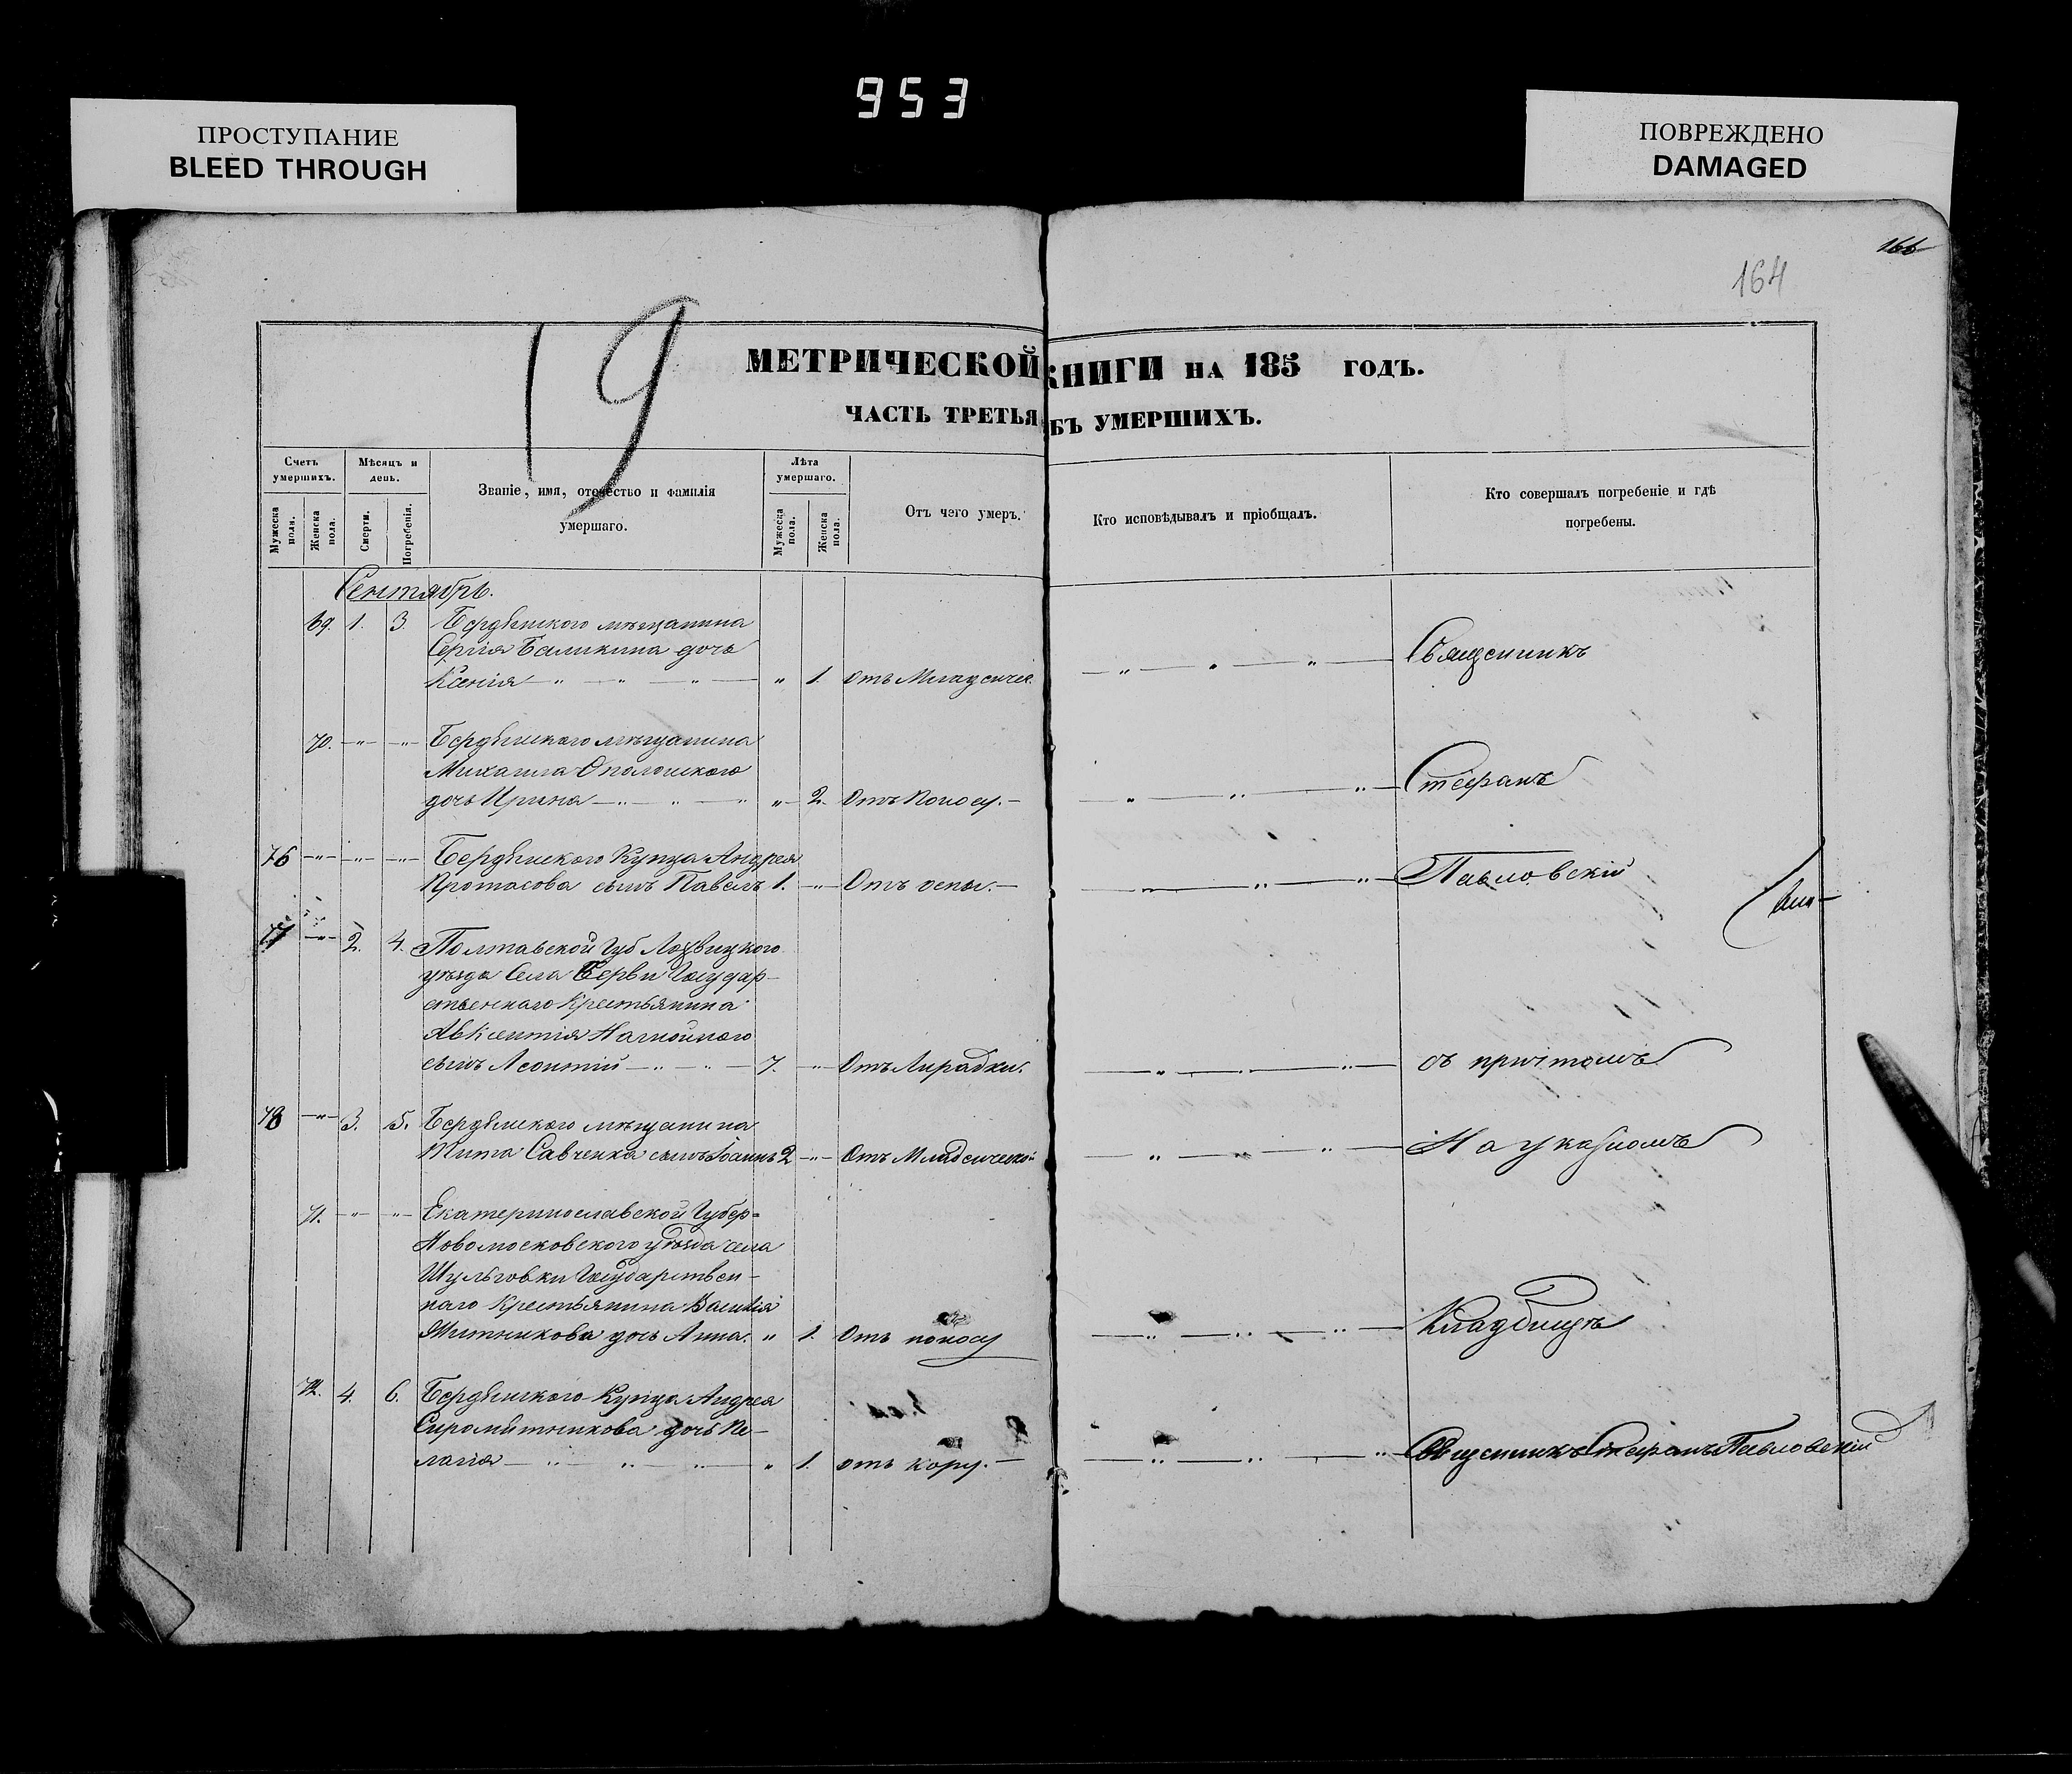 953
ПРОСТУПАНИЕ
BLEED THROUGH
ПОВРЕЖДЕНО
DAMAGED
166
164
19
МЕТРИЧЕСКОЙ КНИГИ НА 185 ГОДЪ.
ЧАСТЬ ТРЕТЬЯ БЪ УМЕРШИХЪ.
Счетъ умершихъ.
Мужеска пола.
Женска пола.
Мѣсяцъ и день.
Смерти.
Погребенія.
Званіе, имя, отчество и фамилія
умершаго.
Лѣта умершаго.
Мужеска пола.
Женска пола.
Отъ чего умеръ.
Кто исповѣдывалъ и пріобщалъ.
Кто совершалъ погребеніе и гдѣ
погребены.
Сентябрь.
69. 1. 3. Бердянского мѣщанина
Сергія Баликина дочь
Ксенія — " — " — " — " 1. Отъ Младенчес. — " — " — " — Священникъ
70. —"— —"— Бердянского мѣщанина
Михаила Ополонского
дочь Ирина — " — " — " " 2. Отъ Поносу. — " — " — " — Стефанъ
76 —"— —"— —"— Бердянского Купца Андрея
Протасова сынъ Павелъ 1. —"— Отъ оспы. — " — " — " — Павловскій
77 —"— 2. 4. Полтавской Губ Лохвицкого
уѣзда Села Берви Государ-
ственнаго Крестьянина
Авксентія Нагнойного
сынъ Леонтій — " — " — 7. —"— Отъ Лирадки. — " — " — " — съ причтомъ
78 —"— 3. 5. Бердянского мѣщанина
Тита Савченка сынъ Іоаннъ 2 —"— Отъ Младенческой — " — " — " — На указномъ
71. —"— —"— Екатеринославской Губер=
Новомосковского уѣзда села
Шульговки Государствен-
наго Крестьянина Василія
Митникова дочь Анна. " 1. Отъ поносу — " — " — " — Кладбищѣ
72. 4. 6. Бердянского Купца Андрея
Сиромятникова дочь Пе-
лагія — " — " — " — " 1. отъ кору. — " — " — " — Священникъ Стефанъ Павловскій